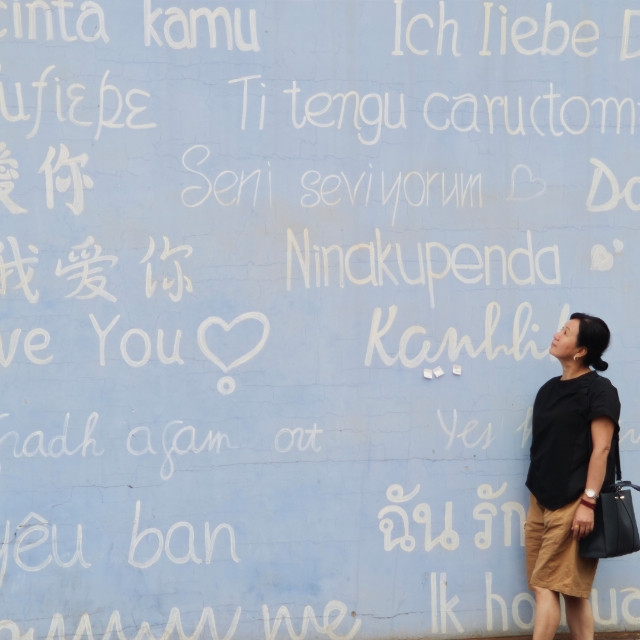 cinta kamu
Ich liebe D
Ti tengu caructom
愛你
Seni seviyorum
Do
我愛你
Ninakupenda
ve You
Kanhhi
radh agam ort
Yes
yêu ban
ฉันรัก
Ik ho